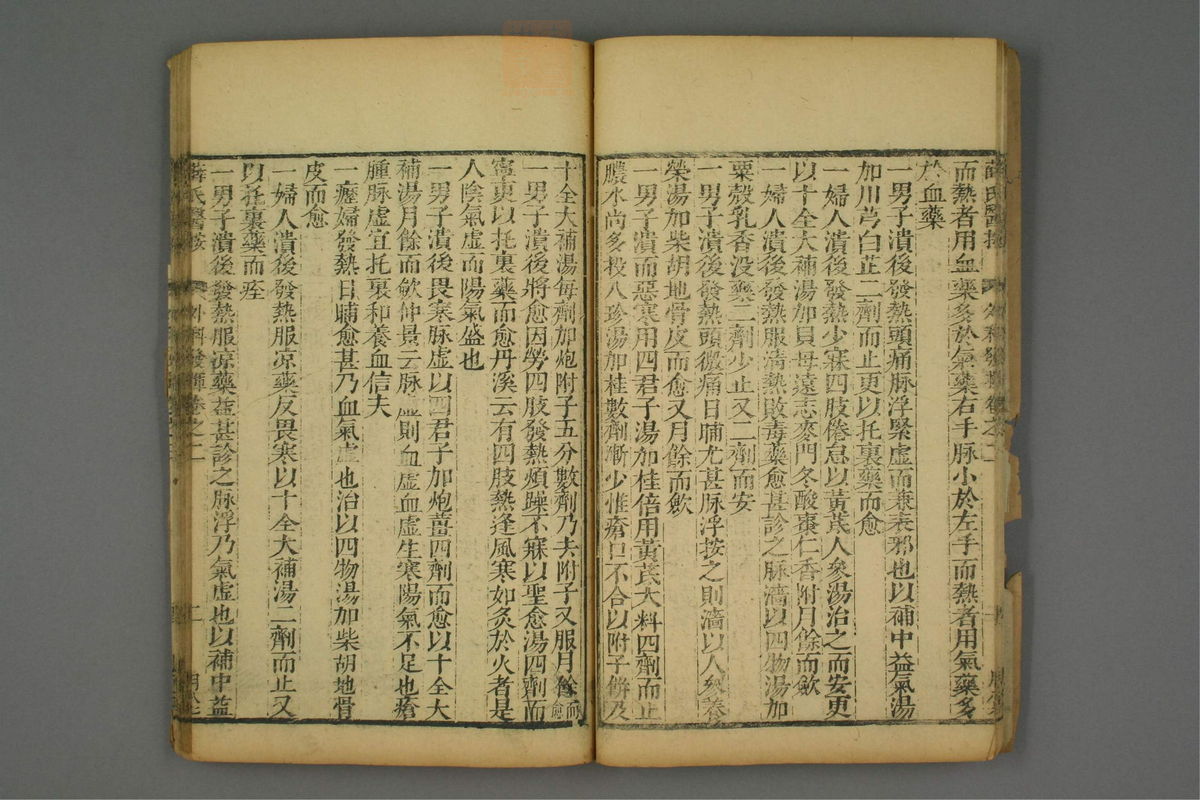 薛氏醫按 外科發揮卷之二
而熱者用血藥多於氣藥右手脉小於左手而熱者用氣藥多
於血藥
一男子潰後發熱頭痛脉浮緊虛而兼表邪也以補中益氣湯
加川芎白芷二劑而止更以托裏藥而愈
一婦人潰後發熱少寐四肢倦怠以黃芪人參湯治之而安更
以十全大補湯加貝母遠志麥門冬酸棗仁香附月餘而斂
一婦人潰後發熱服清熱敗毒藥愈甚診之脉濇以四物湯加
粟殼乳香没藥二劑少止又二劑而安
一男子潰後發熱頭微痛日晡尤甚脉浮按之則濇以人參養
榮湯加柴胡地骨皮而愈又月餘而斂
一男子潰而惡寒用四君子湯加桂倍用黃芪大料四劑而止
膿水尚多投八珍湯加桂數劑漸少惟瘡口不合以附子餅及
十全大補湯每劑加炮附子五分數劑乃去附子又服月餘而愈
一男子潰後將愈因勞四肢發熱煩躁不寐以聖愈湯四劑而
寧更以托裏藥而愈丹溪云有四肢熱逢風寒如炙於火者是
人陰氣虛而陽氣盛也
一男子潰後畏寒脉虛以四君子加炮薑四劑而愈以十全大
補湯月餘而斂仲景云脉虛則血虛血虛生寒陽氣不足也瘡
腫脉虛宜托裏和養血信夫
一瘦婦發熱日晡愈甚乃血氣虛也治以四物湯加柴胡地骨
皮而愈
一婦人潰後發熱服凉藥反畏寒以十全大補湯二劑而止又
以托裏藥而痊
一男子潰後發熱服凉藥益甚診之脉浮乃氣虛也以補中益
薛氏醫按 外科發揮卷之二 二